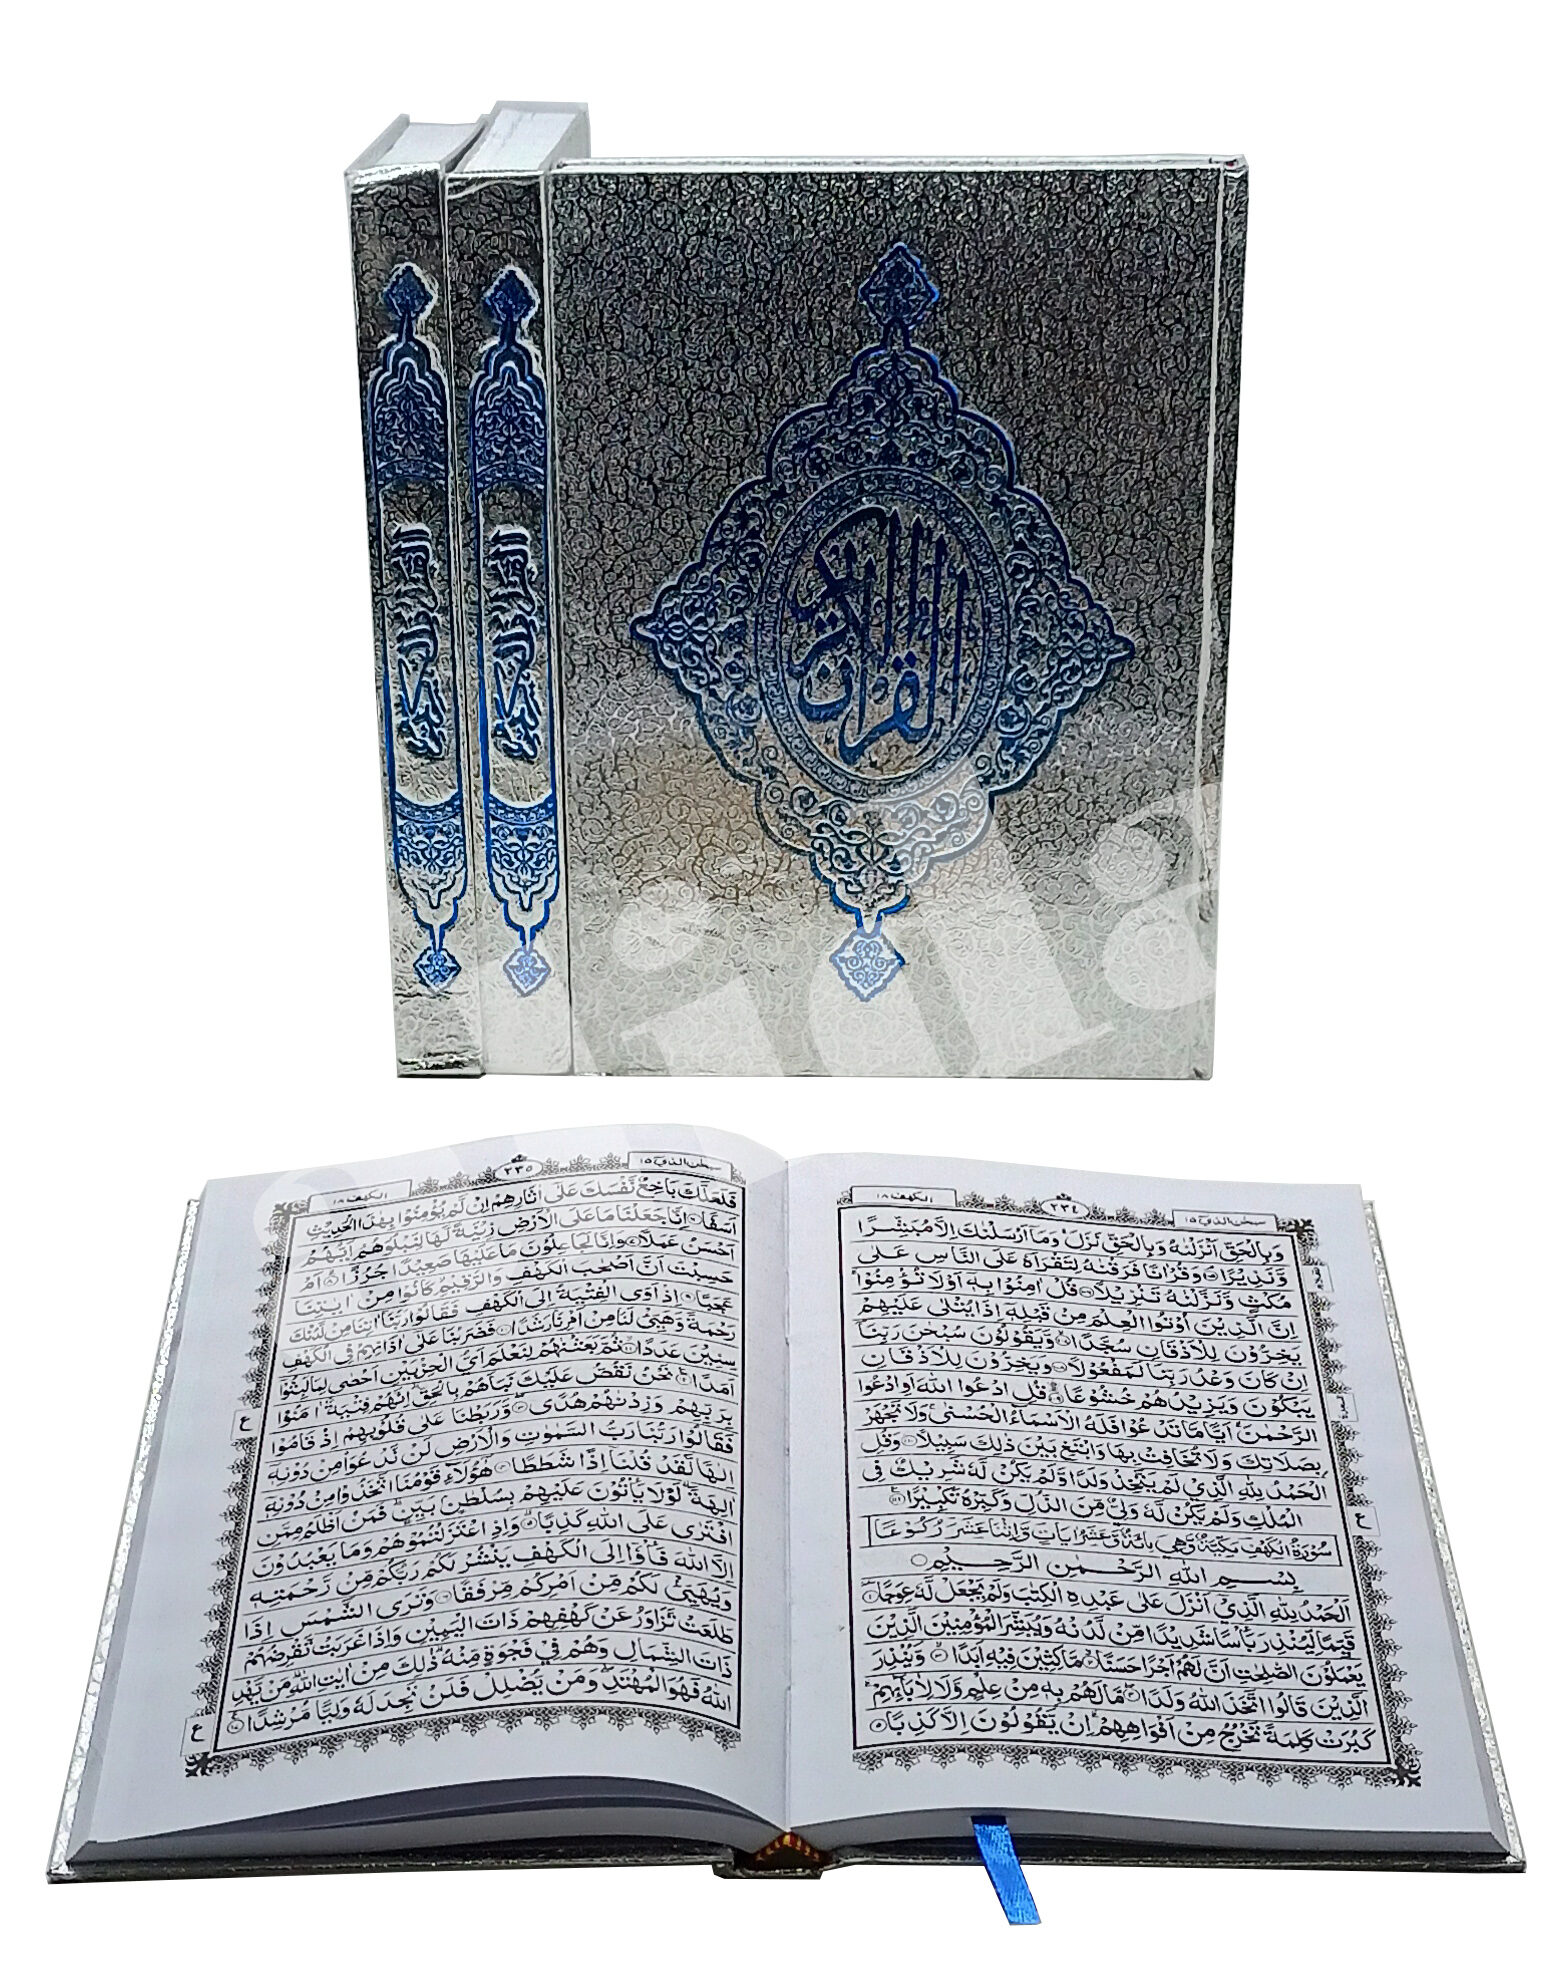 القرآن الكريم
القرآن الكريم
القرآن الكريم
سبحن الذي ١٥
٢٣٤
الكهف ١٨
وَبِالْحَقِّ اَنْزَلْنٰهُ وَبِالْحَقِّ نَزَلَ وَمَآ اَرْسَلْنٰكَ اِلَّا مُبَشِّرًا
وَّنَذِيْرًا ١٠٥ وَقُرْاٰنًا فَرَقْنٰهُ لِتَقْرَاَهٗ عَلَى النَّاسِ عَلٰى
مُكْثٍ وَّنَزَّلْنٰهُ تَنْزِيْلًا ١٠٦ قُلْ اٰمِنُوْا بِهٖٓ اَوْ لَا تُؤْمِنُوْا
اِنَّ الَّذِيْنَ اُوْتُوا الْعِلْمَ مِنْ قَبْلِهٖٓ اِذَا يُتْلٰى عَلَيْهِمْ
يَخِرُّوْنَ لِلْاَذْقَانِ سُجَّدًا ١٠٧ وَيَقُوْلُوْنَ سُبْحٰنَ رَبِّنَآ
اِنْ كَانَ وَعْدُ رَبِّنَا لَمَفْعُوْلًا ١٠٨ وَيَخِرُّوْنَ لِلْاَذْقَانِ
يَبْكُوْنَ وَيَزِيْدُهُمْ خُشُوْعًا ١٠٩ قُلِ ادْعُوا اللّٰهَ اَوِ ادْعُوا
الرَّحْمٰنَ اَيًّا مَّا تَدْعُوْا فَلَهُ الْاَسْمَآءُ الْحُسْنٰى وَلَا تَجْهَرْ
بِصَلَاتِكَ وَلَا تُخَافِتْ بِهَا وَابْتَغِ بَيْنَ ذٰلِكَ سَبِيْلًا ١١٠ وَقُلِ
الْحَمْدُ لِلّٰهِ الَّذِيْ لَمْ يَتَّخِذْ وَلَدًا وَّلَمْ يَكُنْ لَّهٗ شَرِيْكٌ فِي
الْمُلْكِ وَلَمْ يَكُنْ لَّهٗ وَلِيٌّ مِّنَ الذُّلِّ وَكَبِّرْهُ تَكْبِيْرًا ١١١
سُوْرَةُ الْكَهْفِ مَكِّيَّةٌ وَّهِيَ مِائَةٌ وَّعَشْرُ اٰيَاتٍ وَّاِثْنَتَا عَشَرَ رُكُوْعًا
بِسْمِ اللّٰهِ الرَّحْمٰنِ الرَّحِيْمِ
اَلْحَمْدُ لِلّٰهِ الَّذِيْٓ اَنْزَلَ عَلٰى عَبْدِهِ الْكِتٰبَ وَلَمْ يَجْعَلْ لَّهٗ عِوَجًا ١
قَيِّمًا لِّيُنْذِرَ بَاْسًا شَدِيْدًا مِّنْ لَّدُنْهُ وَيُبَشِّرَ الْمُؤْمِنِيْنَ الَّذِيْنَ
يَعْمَلُوْنَ الصّٰلِحٰتِ اَنَّ لَهُمْ اَجْرًا حَسَنًا ٢ مَّاكِثِيْنَ فِيْهِ اَبَدًا ٣ وَّيُنْذِرَ
الَّذِيْنَ قَالُوا اتَّخَذَ اللّٰهُ وَلَدًا ٤ مَّا لَهُمْ بِهٖ مِنْ عِلْمٍ وَّلَا لِاٰبَآئِهِمْ
كَبُرَتْ كَلِمَةً تَخْرُجُ مِنْ اَفْوَاهِهِمْ اِنْ يَّقُوْلُوْنَ اِلَّا كَذِبًا ٥
ع
سبحن الذي ١٥
٢٣٥
الكهف ١٨
فَلَعَلَّكَ بَاخِعٌ نَّفْسَكَ عَلٰٓى اٰثَارِهِمْ اِنْ لَّمْ يُؤْمِنُوْا بِهٰذَا الْحَدِيْثِ
اَسَفًا ٦ اِنَّا جَعَلْنَا مَا عَلَى الْاَرْضِ زِيْنَةً لَّهَا لِنَبْلُوَهُمْ اَيُّهُمْ
اَحْسَنُ عَمَلًا ٧ وَاِنَّا لَجَاعِلُوْنَ مَا عَلَيْهَا صَعِيْدًا جُرُزًا ٨ اَمْ
حَسِبْتَ اَنَّ اَصْحٰبَ الْكَهْفِ وَالرَّقِيْمِ كَانُوْا مِنْ اٰيٰتِنَا
عَجَبًا ٩ اِذْ اَوَى الْفِتْيَةُ اِلَى الْكَهْفِ فَقَالُوْا رَبَّنَآ اٰتِنَا مِنْ لَّدُنْكَ
رَحْمَةً وَّهَيِّئْ لَنَا مِنْ اَمْرِنَا رَشَدًا ١٠ فَضَرَبْنَا عَلٰٓى اٰذَانِهِمْ فِي الْكَهْفِ
سِنِيْنَ عَدَدًا ١١ ثُمَّ بَعَثْنٰهُمْ لِنَعْلَمَ اَيُّ الْحِزْبَيْنِ اَحْصٰى لِمَا لَبِثُوْٓا
اَمَدًا ١٢ نَحْنُ نَقُصُّ عَلَيْكَ نَبَاَهُمْ بِالْحَقِّ اِنَّهُمْ فِتْيَةٌ اٰمَنُوْا
بِرَبِّهِمْ وَزِدْنٰهُمْ هُدًى ١٣ وَّرَبَطْنَا عَلٰى قُلُوْبِهِمْ اِذْ قَامُوْا
فَقَالُوْا رَبُّنَا رَبُّ السَّمٰوٰتِ وَالْاَرْضِ لَنْ نَّدْعُوَا۟ مِنْ دُوْنِهٖٓ
اِلٰهًا لَّقَدْ قُلْنَآ اِذًا شَطَطًا ١٤ هٰٓؤُلَآءِ قَوْمُنَا اتَّخَذُوْا مِنْ دُوْنِهٖٓ
اٰلِهَةً لَوْلَا يَاْتُوْنَ عَلَيْهِمْ بِسُلْطٰنٍۭ بَيِّنٍ فَمَنْ اَظْلَمُ مِمَّنِ
افْتَرٰى عَلَى اللّٰهِ كَذِبًا ١٥ وَاِذِ اعْتَزَلْتُمُوْهُمْ وَمَا يَعْبُدُوْنَ
اِلَّا اللّٰهَ فَاْوٗٓا اِلَى الْكَهْفِ يَنْشُرْ لَكُمْ رَبُّكُمْ مِّنْ رَّحْمَتِهٖ
وَيُهَيِّئْ لَكُمْ مِّنْ اَمْرِكُمْ مِّرْفَقًا ١٦ وَتَرَى الشَّمْسَ اِذَا
طَلَعَتْ تَّزٰوَرُ عَنْ كَهْفِهِمْ ذَاتَ الْيَمِيْنِ وَاِذَا غَرَبَتْ تَّقْرِضُهُمْ
ذَاتَ الشِّمَالِ وَهُمْ فِيْ فَجْوَةٍ مِّنْهُ ذٰلِكَ مِنْ اٰيٰتِ اللّٰهِ مَنْ يَّهْدِ
اللّٰهُ فَهُوَ الْمُهْتَدِ وَمَنْ يُّضْلِلْ فَلَنْ تَجِدَ لَهٗ وَلِيًّا مُّرْشِدًا ١٧
ع
ع